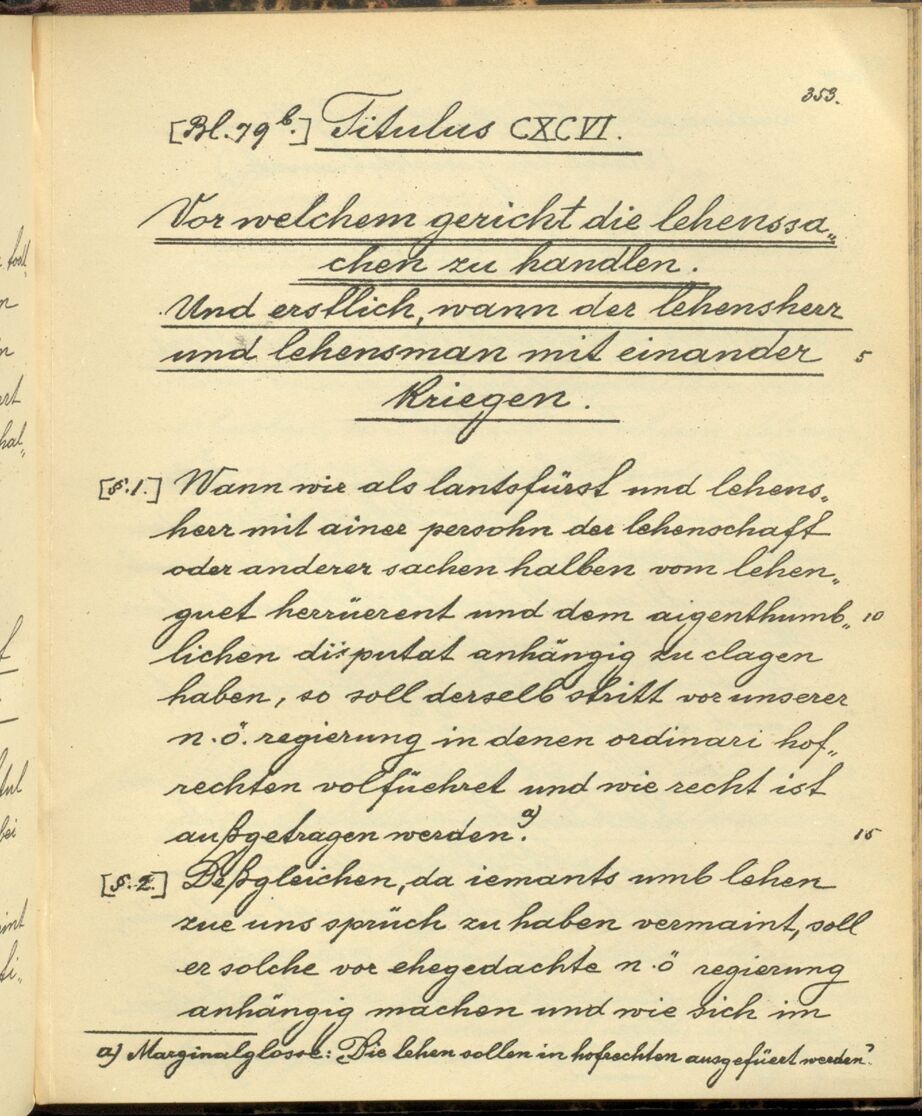 353.
[Bl. 79 b.] Titulus CXCVI.
Vor welchem gericht die lehenssa„
chen zu handlen.
Und erstlich, wann der lehensherr
und lehensman mit einander 5
kriegen.
[§.1.] Wann wir als lantsfürst und lehens„
herr mit ainer persohn der lehenschaft
oder anderer sachen halben vom lehen„
guet herrüerent und dem aigenthumb„ 10
lichen disputat anhängig zu clagen
haben, so soll derselb stritt vor unserer
n.ö. regierung in denen ordinari hof„
rechten volfüehret und wie recht ist
außgetragen werden. a) 15
[§.2.] Deßgleichen, da iemants umb lehen
zue uns sprüch zu haben vermaint, soll
er solche vor ehegedachte n.ö regierung
anhängig machen und wie sich im
a) Marginalglosse: Die lehen sollen in hofrechten ausgefüert werden.